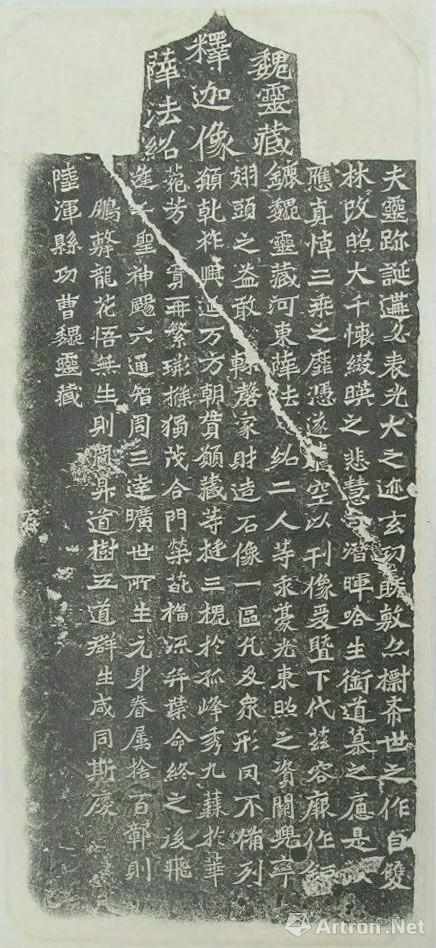 魏靈藏
釋迦像
薛法紹
夫靈跡誕遘必表光大之迹玄功既敷亦標希世之作自雙
林改照大千懷綴暎之悲慧潛暉唅生銜道慕之痛是
應真悼三乘之靡憑遂空以刊像爰暨下代茲容厥作鉅
鏕魏靈藏河東薛法紹二人等求豪光東照之資闕兜率
翅頭之益敢輒磬家財造石像一區凡及眾形罔不備列
願乾祚興延万方朝貫願藏等挺三槐於孤峰秀九蕀於華
菀芳實再繁荊條獨茂合門榮葩福流弈葉命終之後飛
逢千聖神颺六通智周三達曠世所生元身眷屬捨百鄣則
鵬擊龍花悟無生則鳳昇道樹五道群生咸同斯慶
陸渾縣功曹魏靈藏
Artron.Net